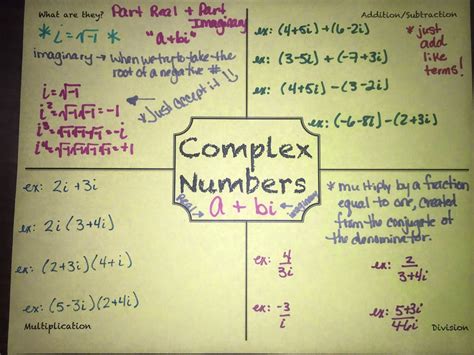 What are they?
Part Real + Part Imaginary
"a+bi"
* i=√-1 *
imaginary → when we try to take the
root of a negative #
*Just accept it!
i=√-1
i²=√-1√-1=-1
i³=√-1√-1√-1=-i
i⁴=√-1√-1√-1√-1=+1
Addition/Subtraction
ex: (4+5i)+(6-2i)
ex: (3-5i)+(-7+3i)
ex: (4+5i)-(3-2i)
ex: (-6-8i)-(2+3i)
*just
add
like
terms!
Complex
Numbers
Real
a + bi
imaginary
ex: 2i +3i
ex: 2i(3+4i)
ex: (2+3i)(4+i)
ex: (5-3i)(2+4i)
Multiplication
* multiply by a fraction
equal to one, created
from the conjugate of
the denominator.
ex: 4/3i
ex: 2/3+4i
ex: -3/i
ex: 5+3i/4-6i
Division